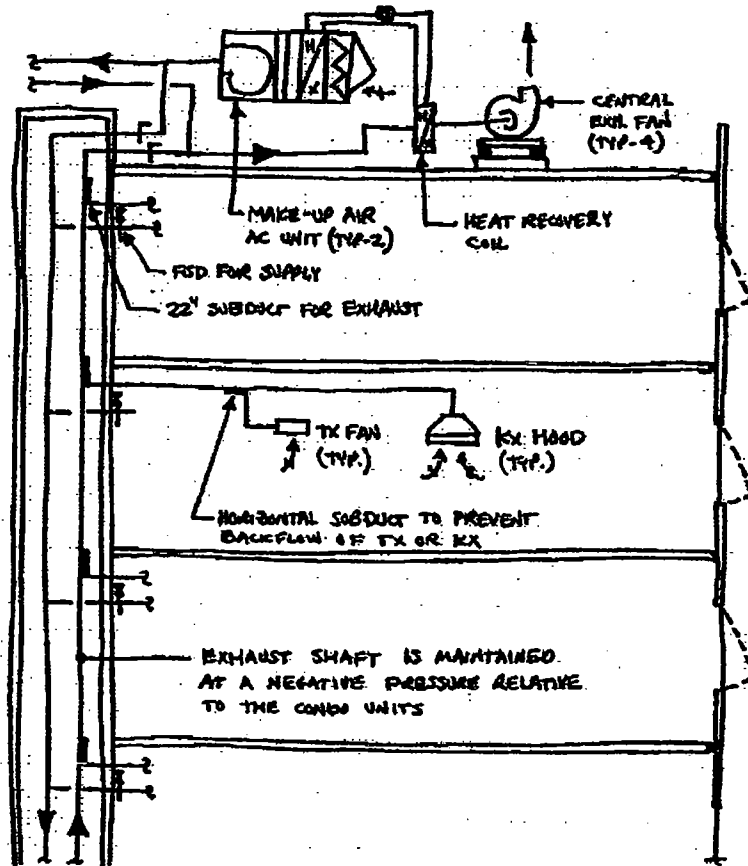 H
X
CENTRAL
EXH. FAN
(TYP-4)
MAKE-UP AIR
AC UNIT (TYP-2)
HEAT RECOVERY
COIL
FSD FOR SUPPLY
22" SUBDUCT FOR EXHAUST
TX FAN
(TYP.)
KX HOOD
(TYP.)
HORIZONTAL SUBDUCT TO PREVENT
BACKFLOW OF TX OR KX
EXHAUST SHAFT IS MAINTAINED
AT A NEGATIVE PRESSURE RELATIVE
TO THE CONDO UNITS